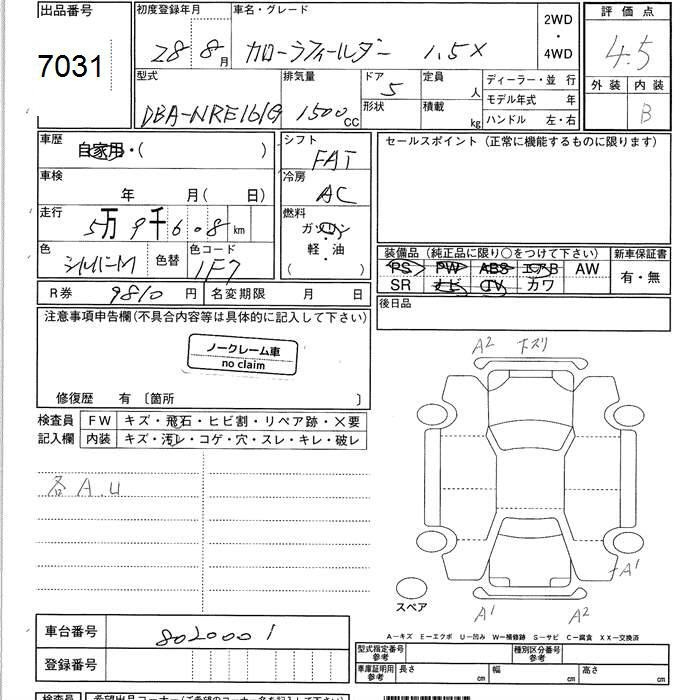 出品番号 初度登録年月 車名・グレード 2WD・4WD 評価点
7031 28 8月 カローラフィールダー 1.5X 4.5
型式 排気量 ドア 定員 ディーラー・並 行 外装 内装
DBA-NRE161G 1500CC 5 人 モデル年式 年 B
形状 積載 kg ハンドル 左・右
車歴 シフト セールスポイント (正常に機能するものに限ります)
自家用・( ) FAT
車検 冷房
年 月( 日) AC
走行 燃料
5万9千608km ガソリン・軽・油
( )
色 色替 色コード 装備品 (純正品に限り○をつけて下さい) 新車保証書
シルバーM 1F7 PS PW ABS エアB AW 有・無
SR ナビ TV カワ
R券 9810円 名変期限 月 日 後日品
注意事項申告欄(不具合内容等は具体的に記入して下さい)
ノークレーム車
no claim
修復歴 有 〔箇所 〕
検査員 FW キズ・飛石・ヒビ割・リペア跡・×要
記入欄 内装 キズ・汚レ・コゲ・穴・スレ・キレ・破レ
各A.U
A2 下ズリ
A1
スペア
A1 A2
車台番号 8020001
A-キズ E-エクボ U-凹み W-補修跡 S-サビ C-腐食 XX-交換済
登録番号 型式指定番号参考 種別区分番号参考
車庫証明用参考 長さ cm 幅 cm 高さ cm
検査員 希望出品コーナー(ご希望のコーナー名を記入して下さい)